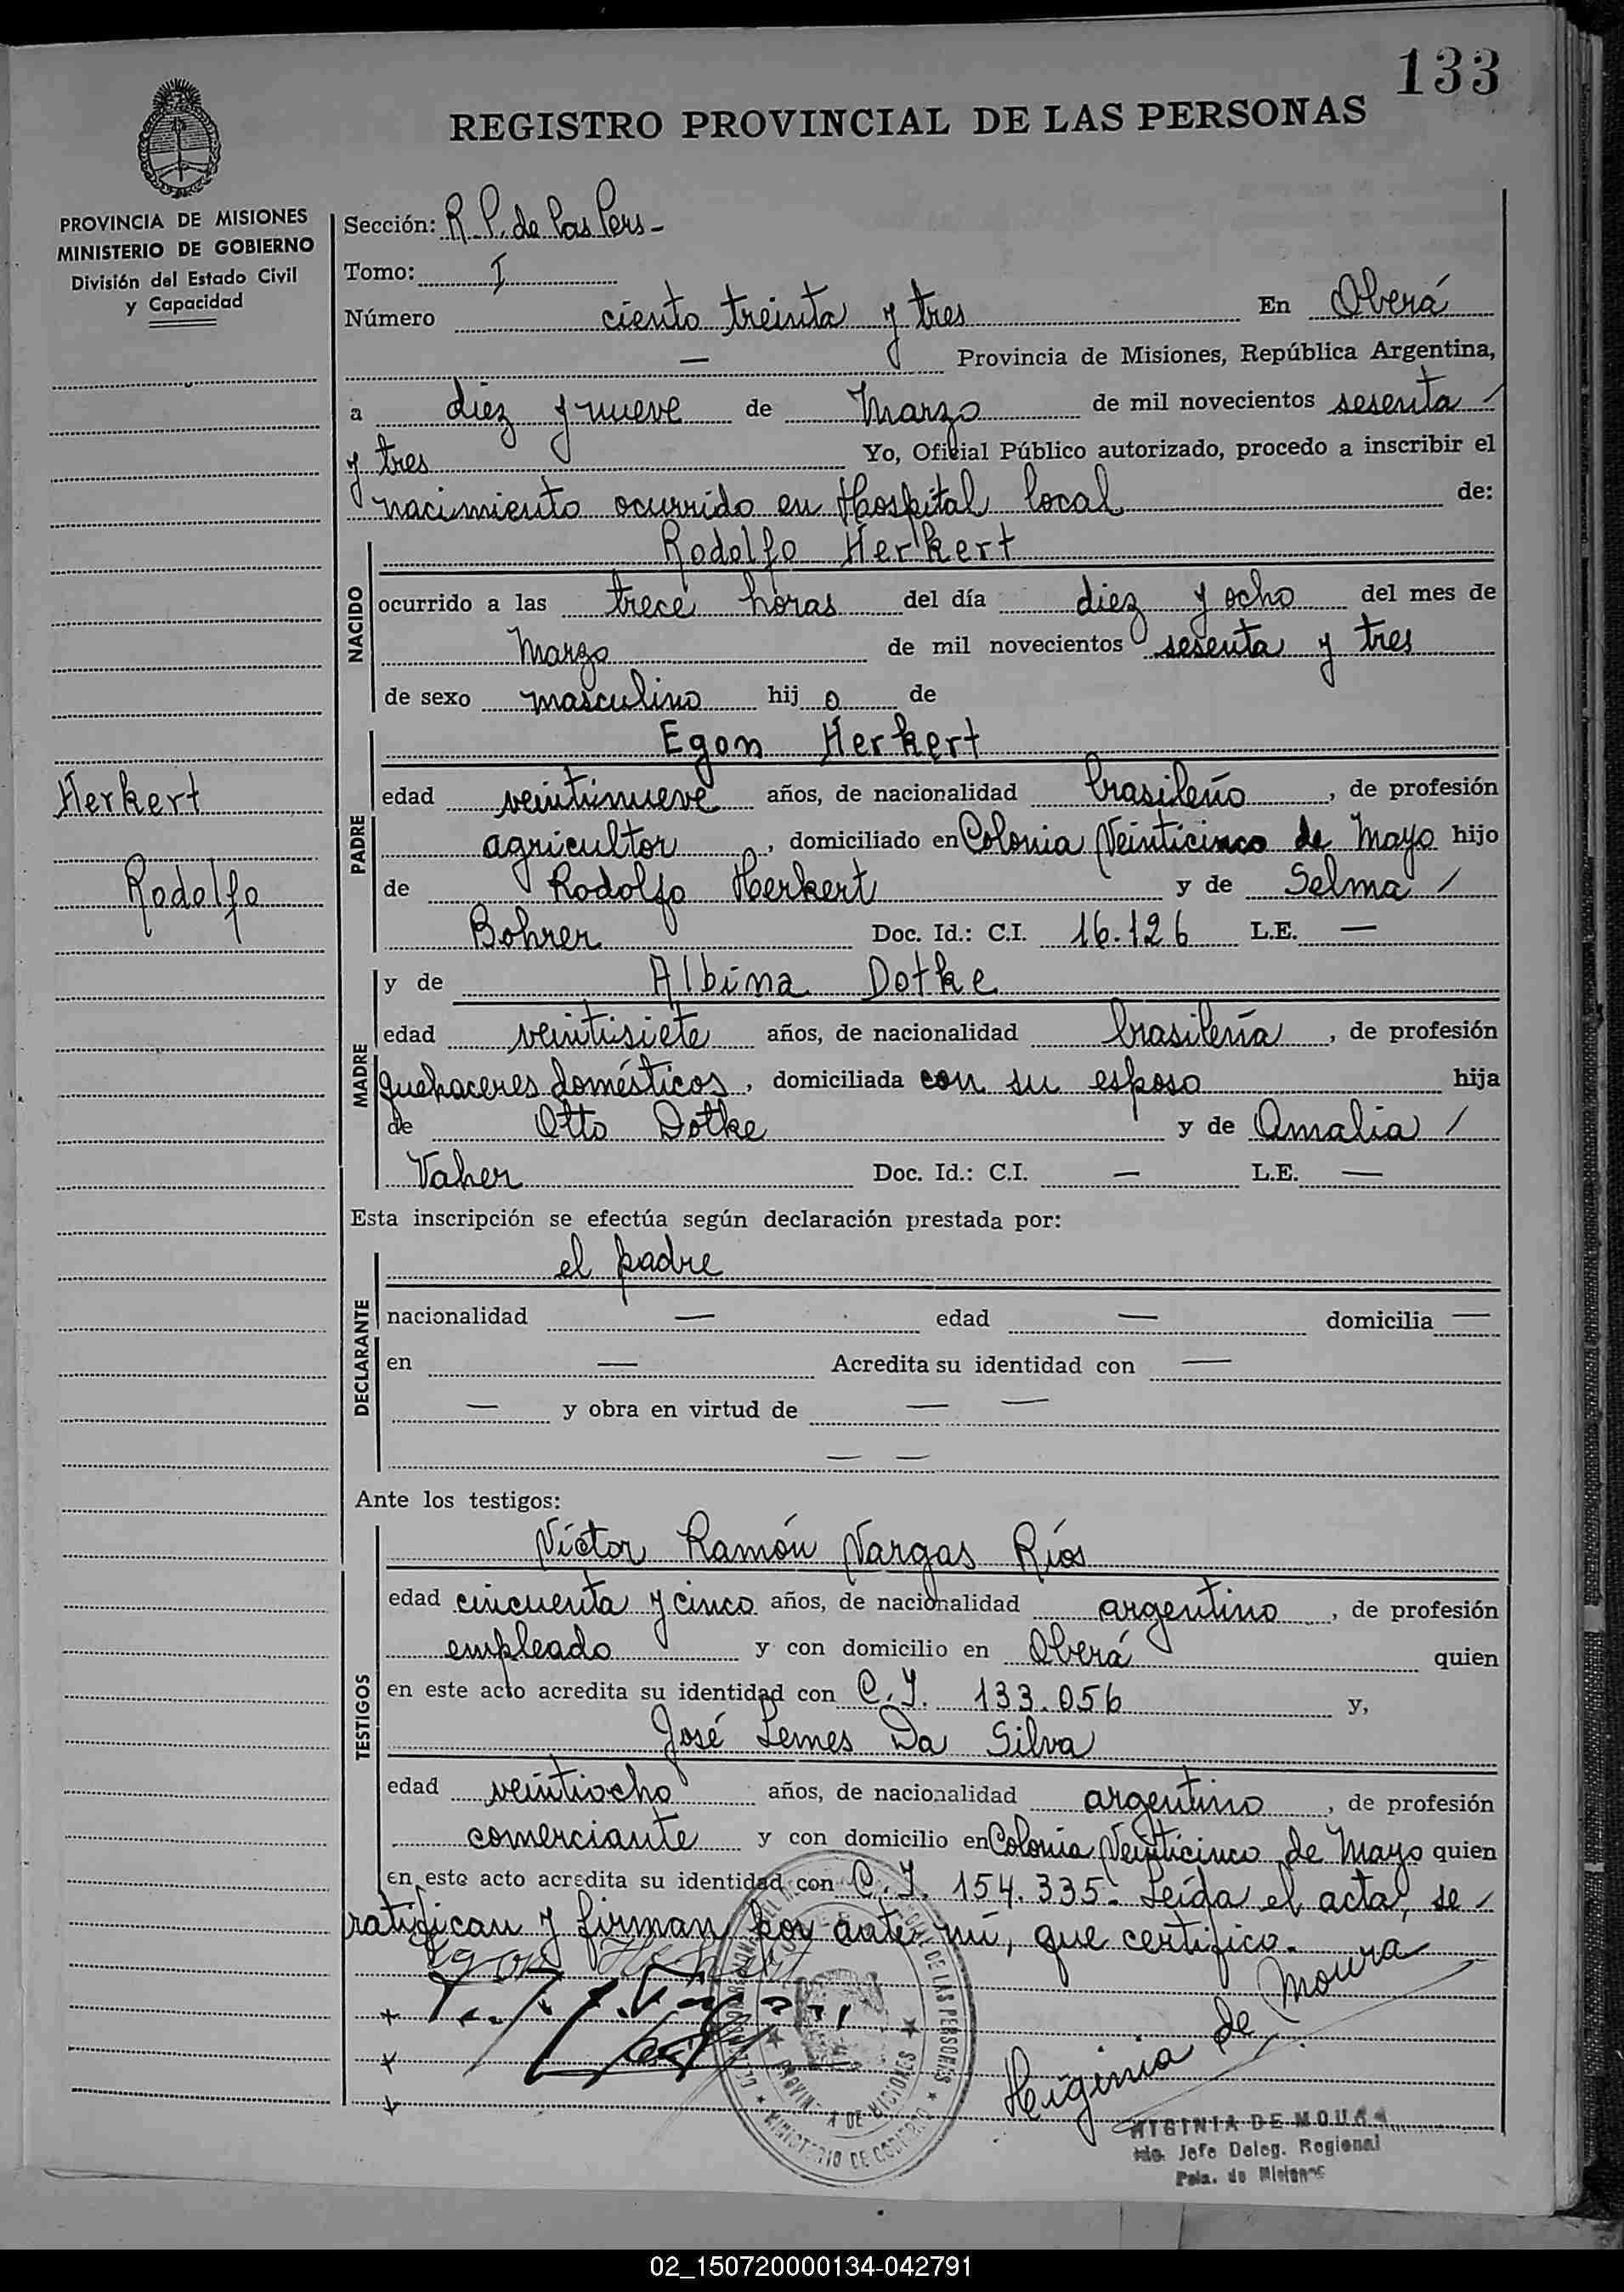 133
REGISTRO PROVINCIAL DE LAS PERSONAS
PROVINCIA DE MISIONES
MINISTERIO DE GOBIERNO
División del Estado Civil
y Capacidad
Herkert
Rodolfo
Sección: R. P. de las Pers -
Tomo: I
Número ciento treinta y tres En Oberá
— Provincia de Misiones, República Argentina,
a diez y nueve de Marzo de mil novecientos sesenta /
y tres Yo, Oficial Público autorizado, procedo a inscribir el
nacimiento ocurrido en Hospital local de:
NACIDO
Rodolfo Herkert
ocurrido a las trece horas del día diez y ocho del mes de
Marzo de mil novecientos sesenta y tres
de sexo masculino hij o de
PADRE
Egon Herkert
edad veintinueve años, de nacionalidad brasileño, de profesión
agricultor, domiciliado en Colonia Veinticinco de Mayo hijo
de Rodolfo Herkert y de Selma /
Bohrer Doc. Id.: C.I. 16.126 L.E. —
MADRE
y de Albina Dotke
edad veintisiete años, de nacionalidad brasileña, de profesión
quehaceres domésticos, domiciliada con su esposo hija
de Otto Dotke y de Amalia /
Vaher Doc. Id.: C.I. — L.E. —
Esta inscripción se efectúa según declaración prestada por:
DECLARANTE
el padre
nacionalidad — edad — domicilia —
en — Acredita su identidad con —
— y obra en virtud de — —
— —
Ante los testigos:
TESTIGOS
Víctor Ramón Vargas Ríos
edad cincuenta y cinco años, de nacionalidad argentino, de profesión
empleado y con domicilio en Oberá quien
en este acto acredita su identidad con C. I. 133.056 y,
José Lemes Da Silva
edad veintiocho años, de nacionalidad argentino, de profesión
comerciante y con domicilio en Colonia Veinticinco de Mayo quien
en este acto acredita su identidad con C. I. 154.335.- Leída el acta, se /
ratifican y firman por ante mí, que certifico.-
Egon Herkert
Higinia de Moura
DE LAS PERSONAS
MINISTERIO DE GOBIERNO
HIGINIA DE MOURA
Jefe Deleg. Regional
Pcia. de Misiones
02_150720000134-042791